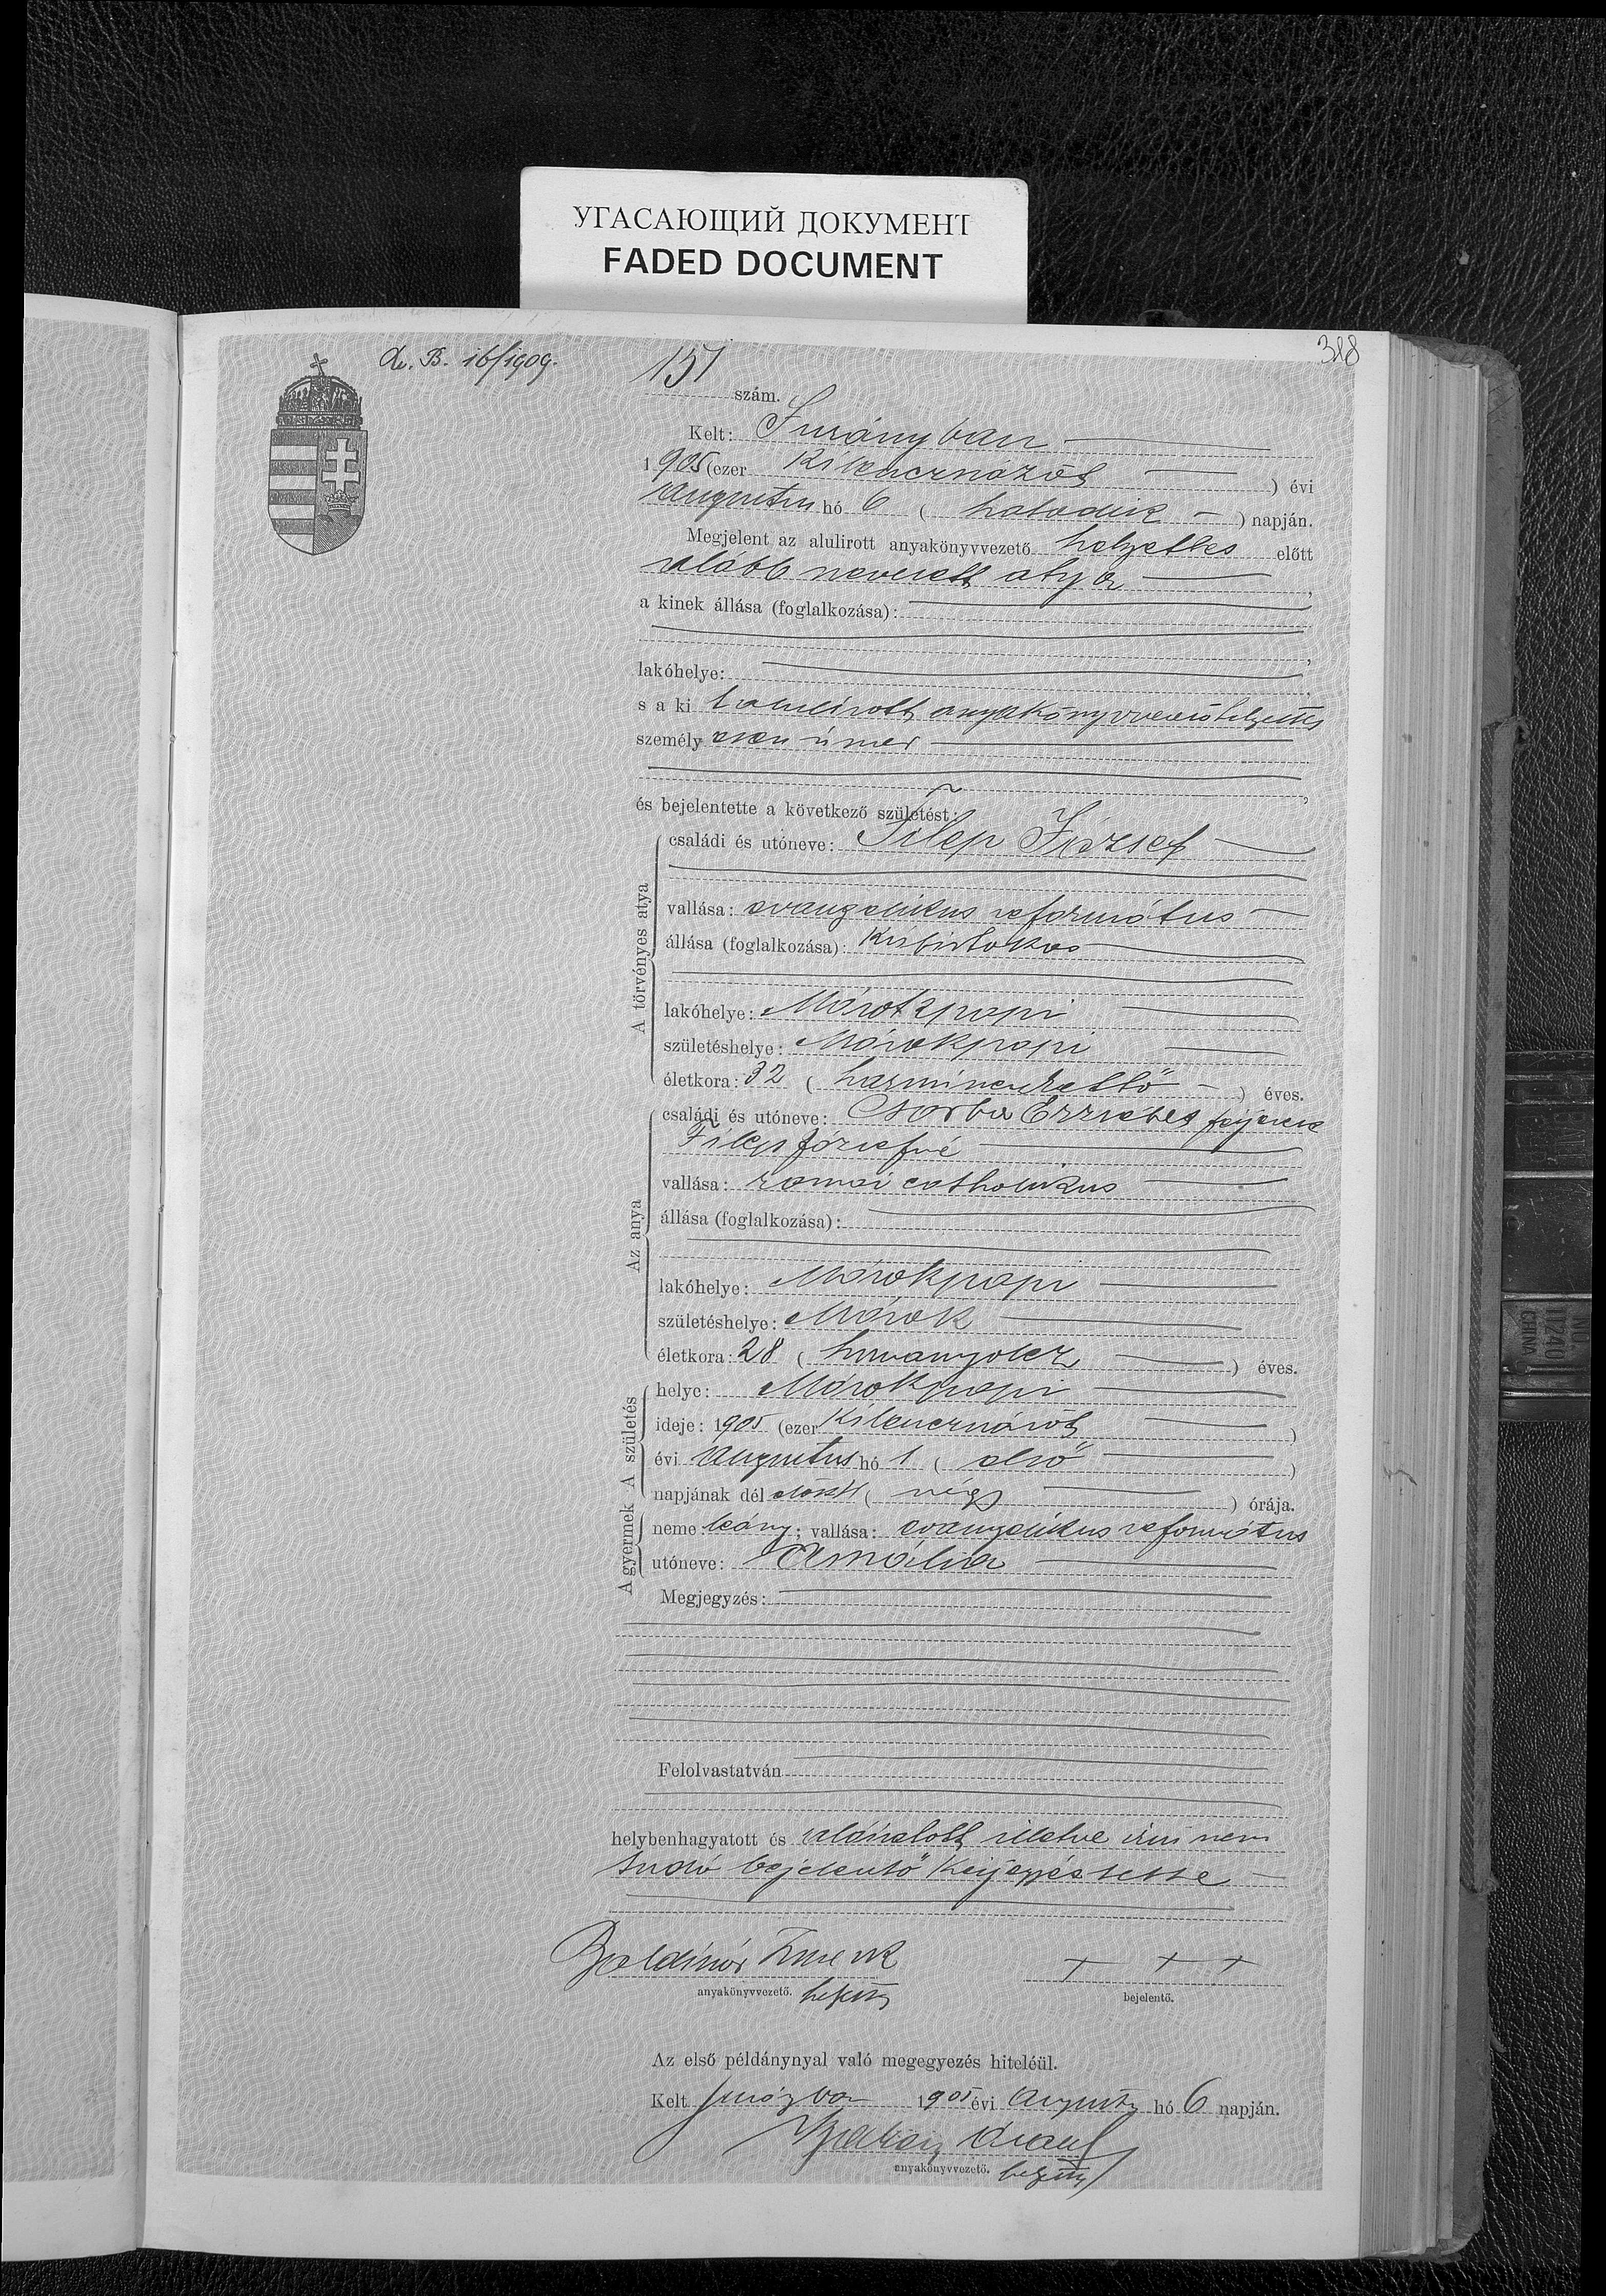 УГАСАЮЩИЙ ДОКУМЕНТ
FADED DOCUMENT
318
L. B. 16/1909.
151 szám.
Kelt: Surányban
1905 (ezer kilenczszázöt ) évi
augusztus hó 6 ( hatodik ) napján.
Megjelent az alulirott anyakönyvvezető helyettes előtt
alább nevezett atya ,
a kinek állása (foglalkozása):
lakóhelye:
s a ki t alulirott anyakönyvvezető helyettes
személy esen ismer
és bejelentette a következő születést:
A törvényes atya
családi és utóneve: Filep József
vallása: evangelikus református
állása (foglalkozása): kisbirtokos
lakóhelye: Márokpapi
születéshelye: Márokpapi
életkora: 32 ( harminczkettő ) éves.
Az anya
családi és utóneve: Csorba Erzsébet férjezett
Filep Józsefné
vallása: romai catholikus
állása (foglalkozása):
lakóhelye: Márokpapi
születéshelye: Márok
életkora: 28 ( huszonyolcz ) éves.
A születés
helye: Márokpapi
ideje: 1905 (ezer kilenczszázöt )
évi augusztus hó 1 ( első )
napjának dél előtti ( négy ) órája.
A gyermek
neme leány; vallása: evangelikus református
utóneve: Amália
Megjegyzés:
Felolvastatván
helybenhagyatott és aláíratott illetve írni nem
tudó bejelentő kézjegyést tette
Imre
anyakönyvvezető. helyettes
+ + +
bejelentő.
Az első példánynyal való megegyezés hiteléül.
Kelt 1905 évi augusztus hó 6 napján.
anyakönyvvezető. helyettes
NO
11740
CHINA